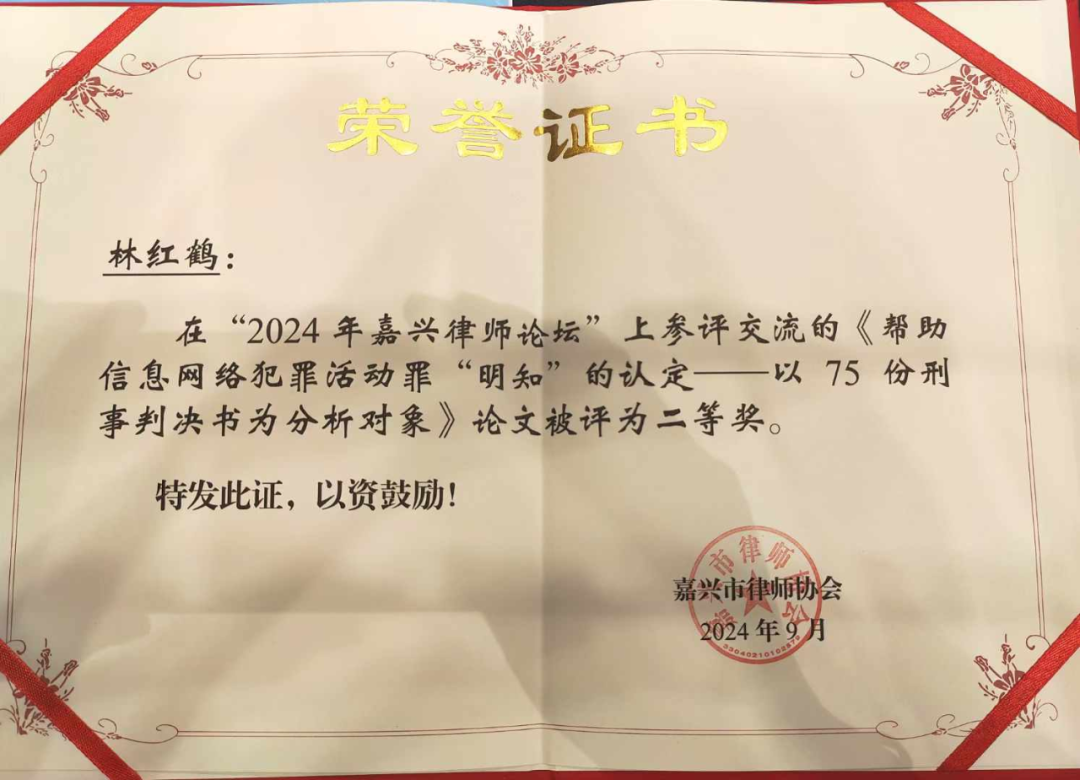 荣誉证书
林红鹤：
在“2024年嘉兴律师论坛”上参评交流的《帮助
信息网络犯罪活动罪“明知”的认定——以 75 份刑
事判决书为分析对象》论文被评为二等奖。
特发此证，以资鼓励！
嘉兴市律师协会
2024年9月